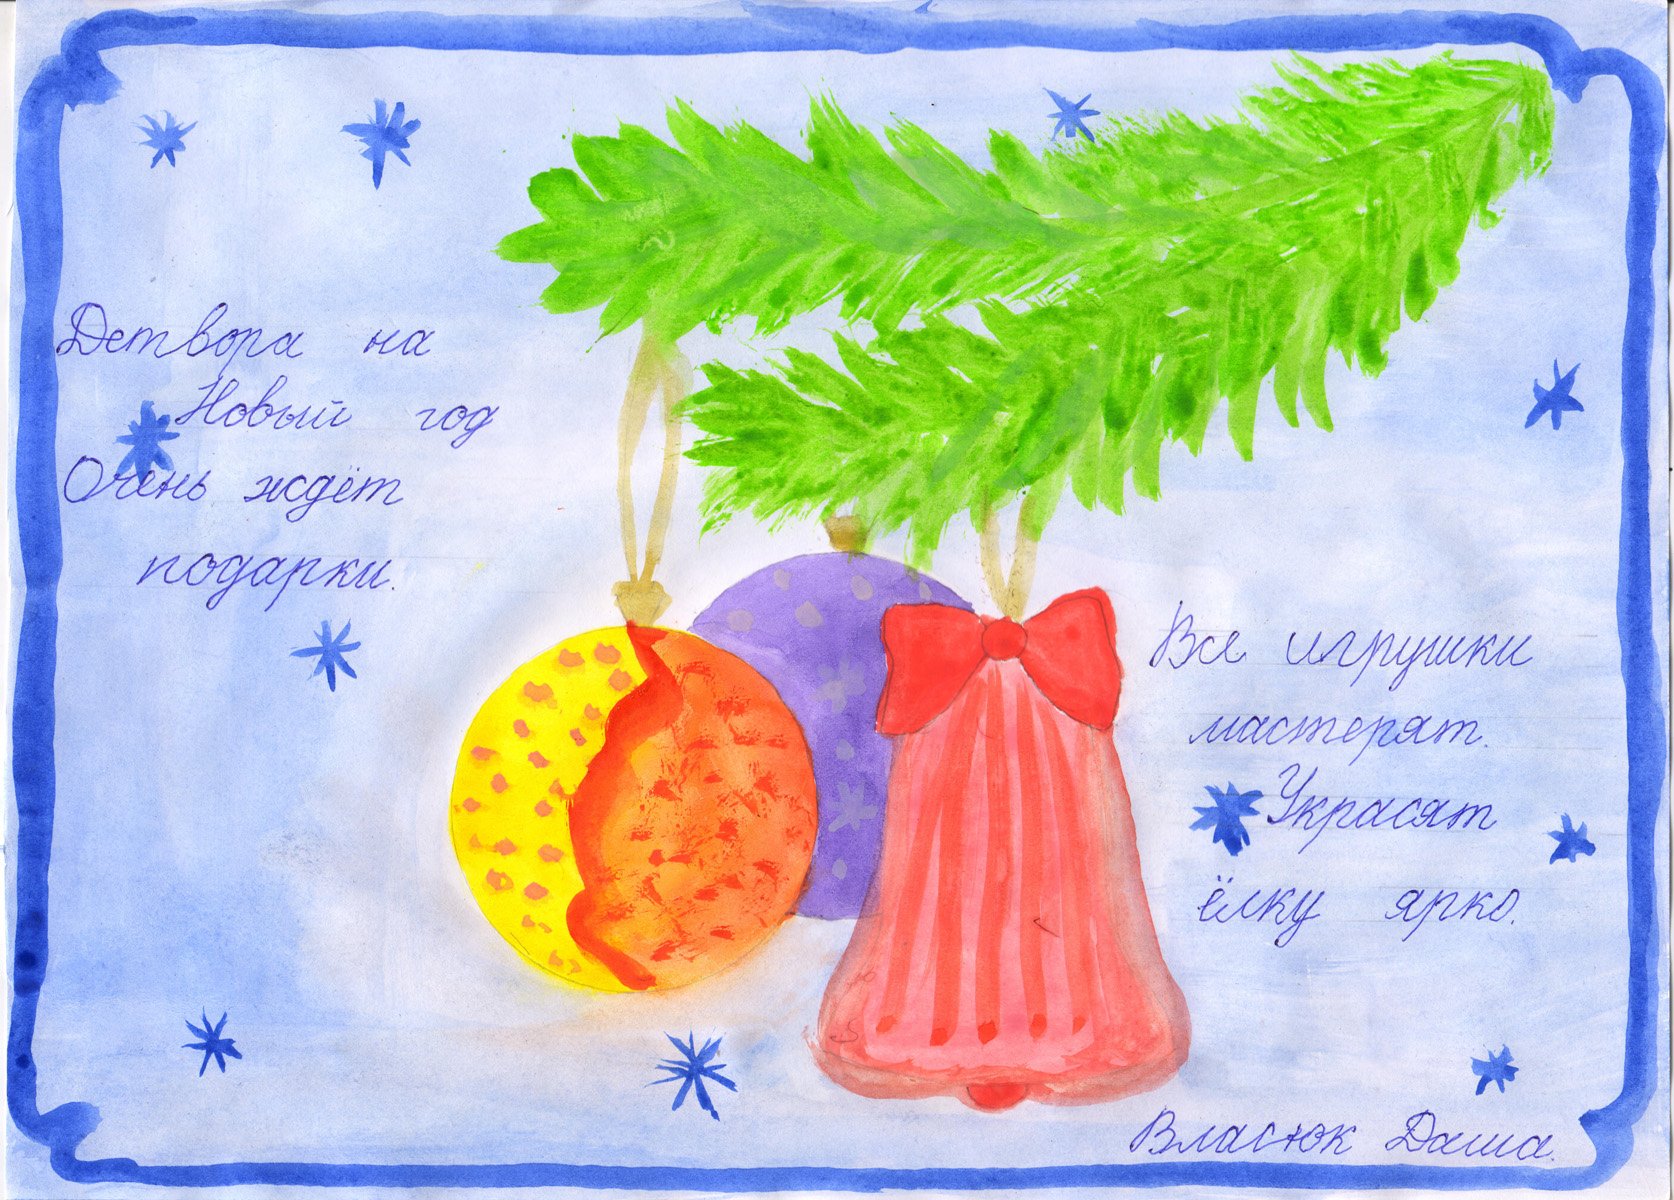 Детвора на
Новый год
Очень ждёт
подарки.
Все игрушки
мастерят.
Украсят
ёлку ярко.
Власюк Даша.